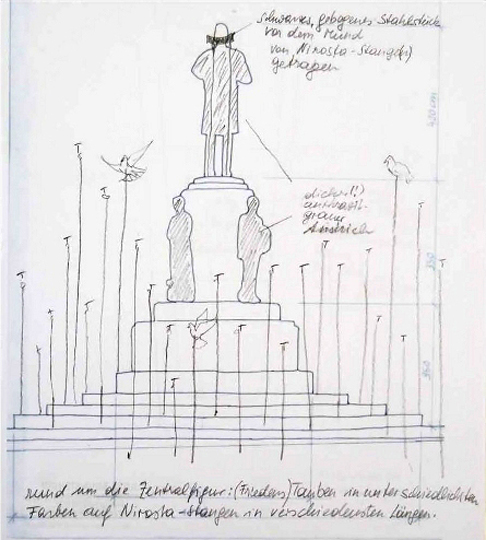 schwarzes, gebogenes Stahlstück
vor dem Mund
von Nirosta-Stange(n)
getragen
dicker(!)
anthrazit-
grauer
Anstrich
420 cm
350
350
rund um die Zentralfigur: (Friedens)Tauben in unterschiedlichsten
Farben auf Nirosta-Stangen in verschiedensten Längen.